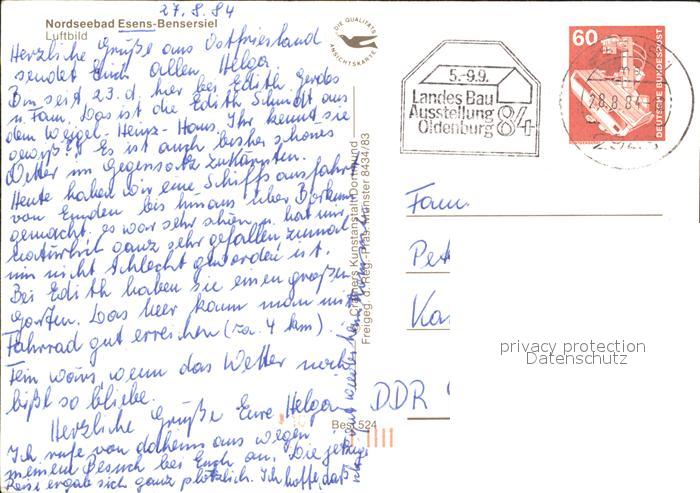 27.8.84
Nordseebad Esens-Bensersiel
Luftbild
DIE QUALITÄTS
ANSICHTSKARTE
Herzliche Grüße aus Ostfriesland
sendet Euch allen Helga.
Bin seit 23.d. hier bei Edith Gerdes
u. Fam. Das ist die Edith Schmidt aus
dem Weigel-Heinz-Haus Ihr kennt sie
gewiß? Es ist auch bisher schönes
Wetter im Gegensatz zu
Heute haben wir eine Schiffsausfahrt
von Emden bis hinaus über Borkum
gemacht. es war sehr schön u. hat mir
natürlich ganz sehr gefallen zumal
mir nicht schlecht geworden ist.
Bei Edith haben sie einen großen
Garten. Das Meer kann man mit
Fahrrad gut erreichen (ca. 4 km).
Fein wärs, wenn das Wetter noch
bißl so bliebe.
Herzliche Grüße Eure Helga
Ich rufe von daheim aus wegen
meinem Besuch bei Euch an. Die jetzige
Reise ergab sich ganz plötzlich. Ich hoffe, daß
Cramers Kunstanstalt Dortmund
Freigeg. d. Reg.-Präs. Münster 8434/83
Best 524
5.-9.9.
Landes Bau
Ausstellung
Oldenburg 84
28.8.84
60
DEUTSCHE BUNDESPOST
Fam.
Pet
Ka
DDR
privacy protection
Datenschutz